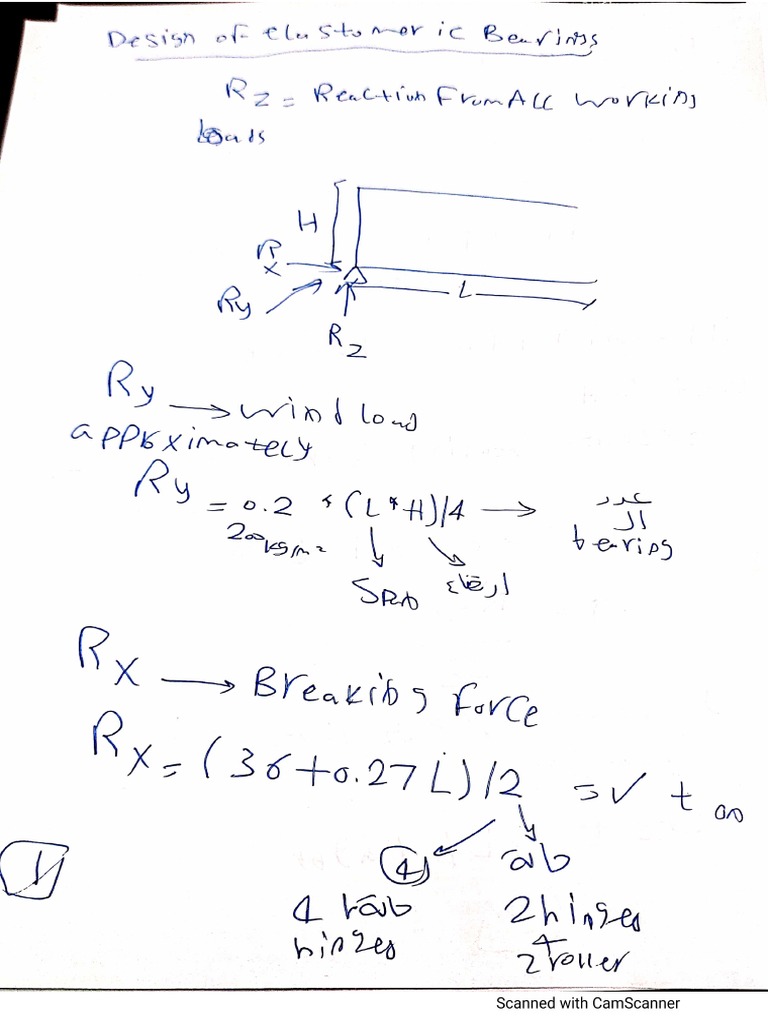 Design of Elastomeric Bearings
RZ = Reaction From All Working
loads
H
Rx
Ry
L
RZ
Ry → wind load
approximately
Ry = 0.2 * (L * H)/4 → عدد
ال
bearing
200 kg/m2
Span
ارتفاع
Rx → Breaking force
Rx = (36+0.27 L)/2 = ✓ ton
4
4
hinges
2 hinges
+
2 roller
1
Scanned with CamScanner